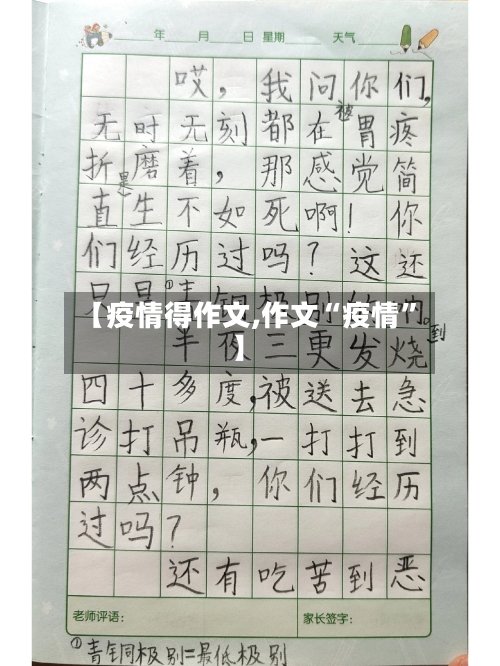 年 月 日 星期 天气
哎，我问你们，
无时无刻都在被胃疼
折磨着，那感觉简
直是生不如死啊！你
们经历过吗？这还
只是①青铜极别的。
【疫情得作文,作文“疫情”
】
半夜三更发烧到
四十多度，被送去急
诊打吊瓶，一打打到
两点钟，你们经历
过吗？
还有吃苦到恶
老师评语： 家长签字：
①青铜极别=最低极别